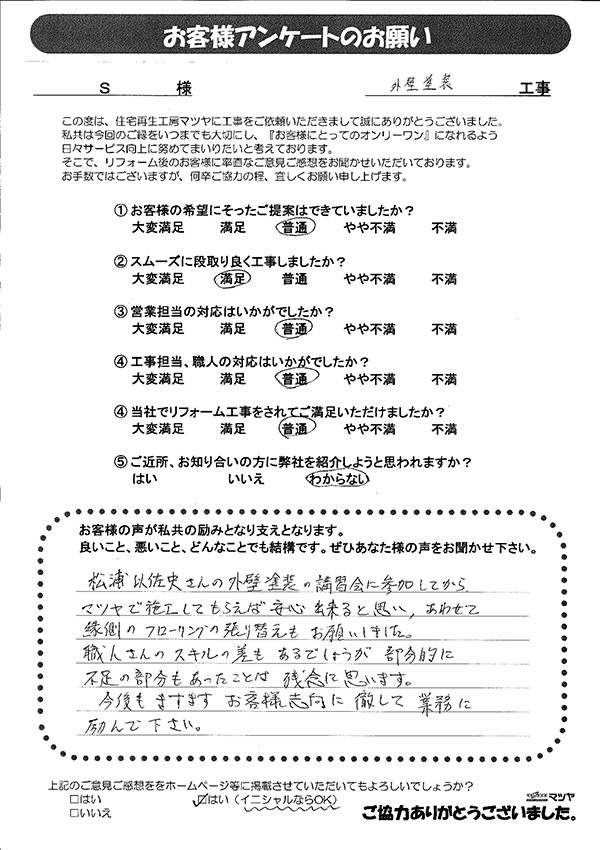 お客様アンケートのお願い
S 様 外壁塗装 工事
この度は、住宅再生工房マツヤに工事をご依頼いただきまして誠にありがとうございました。
私共は今回のご縁をいつまでも大切にし、『お客様にとってのオンリーワン』になれるよう
日々サービス向上に努めてまいりたいと考えております。
そこで、リフォーム後のお客様に率直なご意見ご感想をお聞かせいただいております。
お手数ではございますが、何卒ご協力の程、宜しくお願い申し上げます。
① お客様の希望にそったご提案はできていましたか？
大変満足 満足 普通 やや不満 不満
② スムーズに段取り良く工事しましたか？
大変満足 満足 普通 やや不満 不満
③ 営業担当の対応はいかがでしたか？
大変満足 満足 普通 やや不満 不満
④ 工事担当、職人の対応はいかがでしたか？
大変満足 満足 普通 やや不満 不満
④ 当社でリフォーム工事をされてご満足いただけましたか？
大変満足 満足 普通 やや不満 不満
⑤ ご近所、お知り合いの方に弊社を紹介しようと思われますか？
はい いいえ わからない
お客様の声が私共の励みとなり支えとなります。
良いこと、悪いこと、どんなことでも結構です。ぜひあなた様の声をお聞かせ下さい。
松浦以佐史さんの外壁塗装の講習会に参加してから
マツヤで施工してもらえば安心出来ると思い、あわせて
縁側のフローリングの張り替えもお願いしました。
職人さんのスキルの差もあるでしょうが部分的に
不足の部分もあったことは残念に思います。
今後もますますお客様志向に徹して業務に
励んで下さい。
上記のご意見ご感想ををホームページ等に掲載させていただいてもよろしいでしょうか？
□はい ☑はい（イニシャルならOK）
□いいえ
マツヤ
ご協力ありがとうございました。